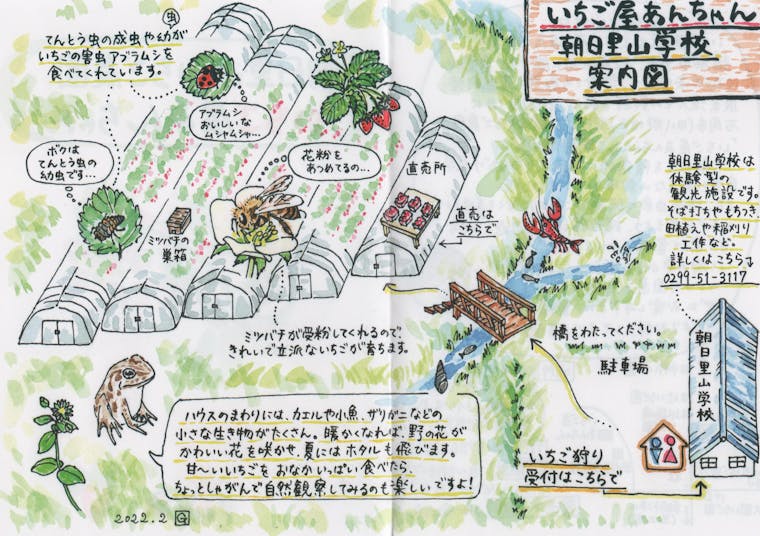 いちご屋あんちゃん
朝日里山学校
案内図
虫
てんとう虫の成虫や幼が
いちごの害虫アブラムシを
食べてくれています。
アブラムシ
おいしいな
ムシャムシャ…
ボクは
てんとう虫の
幼虫です…
花粉を
あつめてるの…
直売所
直売は
こちらで
ミツバチの
巣箱
ミツバチが受粉してくれるので、
きれいで立派ないちごが育ちます。
朝日里山学校は
体験型の
観光施設です。
そば打ちやもちつき、
田植えや稲刈り
工作など。
詳しくはこちら→
0299-51-3117
橋をわたってください。
駐車場
朝日里山学校
いちご狩り
受付はこちらで
ハウスのまわりには、カエルや小魚、ザリガニなどの
小さな生き物がたくさん。暖かくなれば、野の花が
かわいい花を咲かせ、夏にはホタルも飛びます。
甘〜いいちごをおなかいっぱい食べたら、
ちょっとしゃがんで自然観察してみるのも楽しいですよ!
2022.2 G